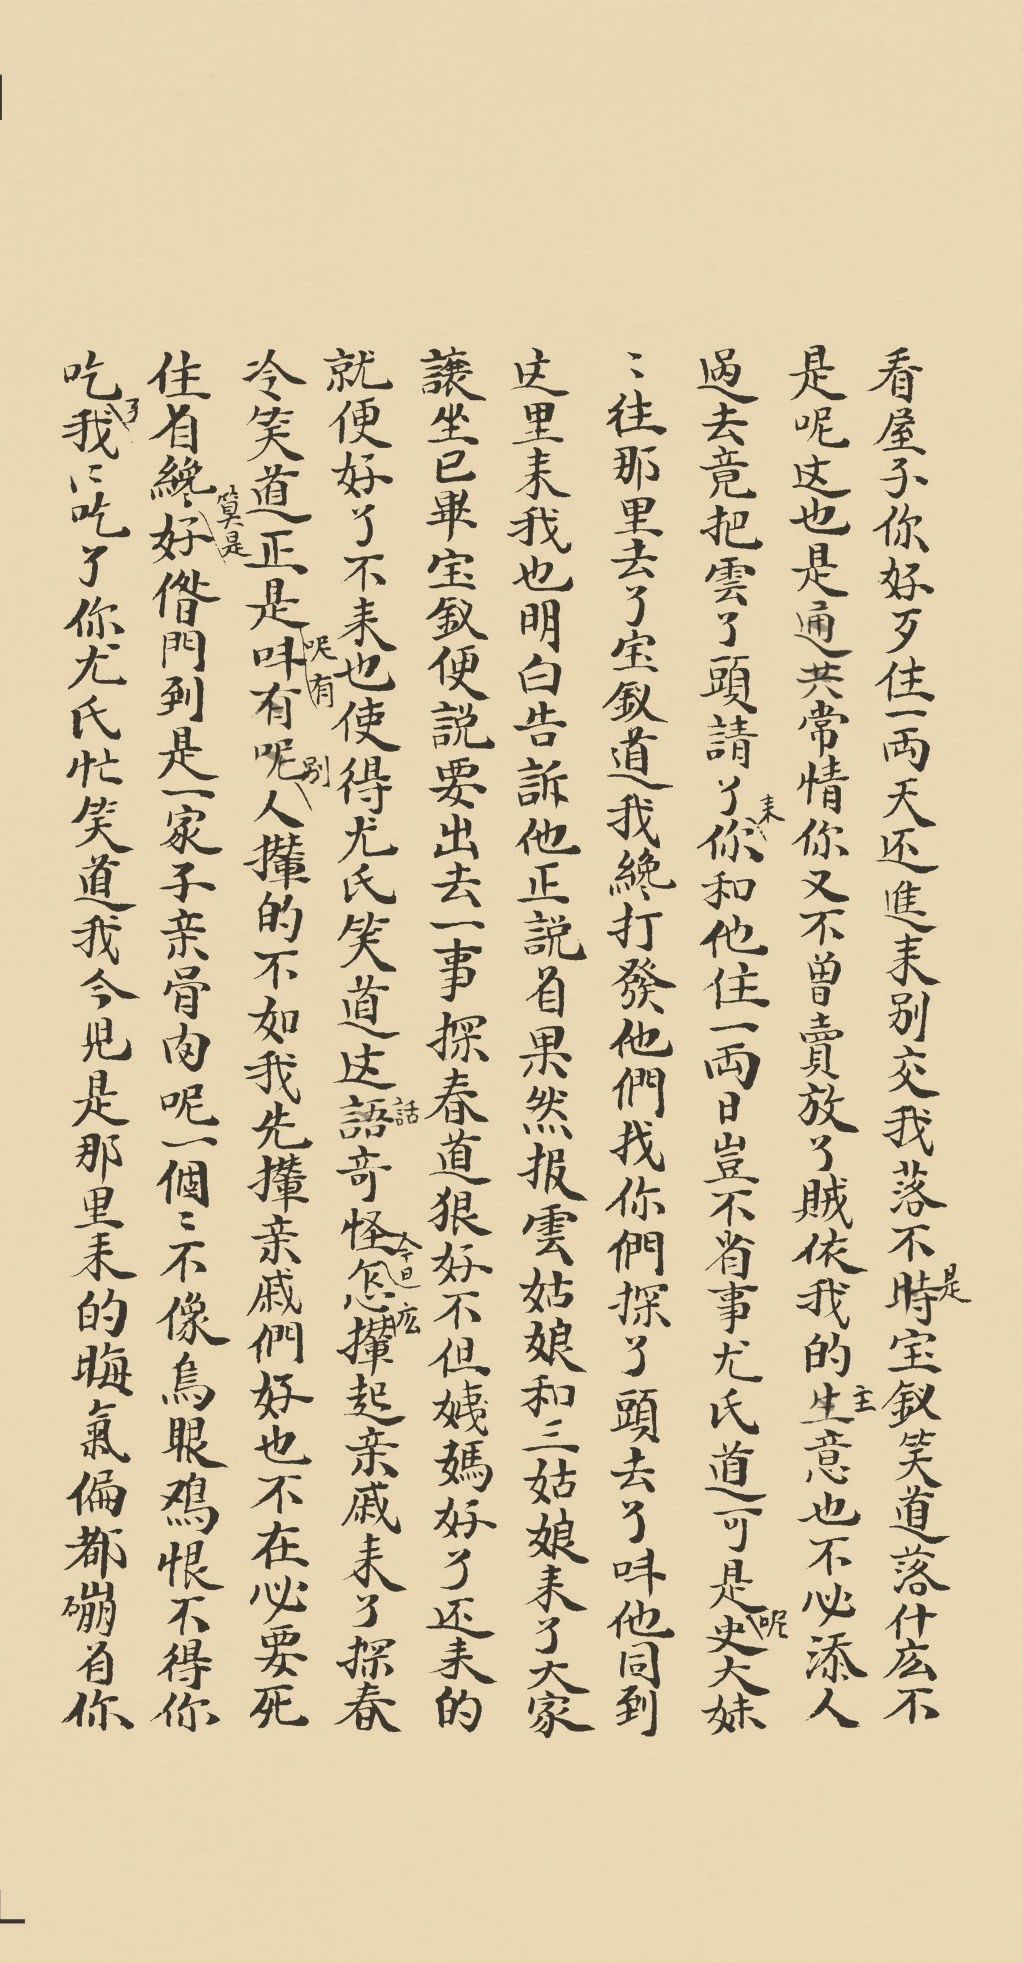 看屋子你好歹住一両天还進来别交我落不是時宝釵笑道落什広不
是呢这也是通共常情你又不曽賣放了賊依我的主生意也不必添人
過去竟把雲丫頭請了来你和他住一両日豈不省事尤氏道可是呢史大妹
〻往那里去了宝釵道我纔打發他們找你們探丫頭去了呌他同到
这里来我也明白告訴他正説着果然报雲姑娘和三姑娘来了大家
讓坐已畢宝釵便説要出去一事探春道狠好不但姨媽好了还来的
就便好了不来也使得尤氏笑道这話語奇怪今日怎広攆起亲戚来了探春
冷笑道正是呢有呌有呢别人攆的不如我先攆亲戚們好也不在必要死
住着纔算是好偺門到是一家子亲骨肉呢一個〻不像烏眼鸡恨不得你
吃了我〻吃了你尤氏忙笑道我今児是那里来的晦氣偏都磞着你